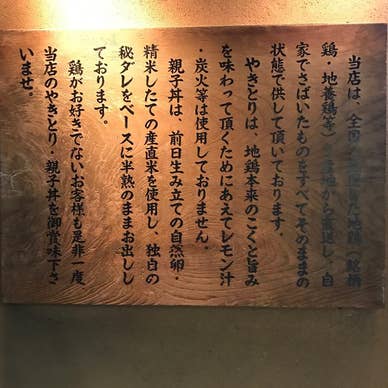 当店は、全国
地鶏(銘柄
鶏・地養鶏等)を産地から直送し、自
家でさばいたものをすべてそのままの
状態で供して頂いております。
やきとりは、地鶏本来のこくと旨み
を味わって頂くためにあえてレモン汁
・炭火等は使用しておりません。
親子丼は、前日生み立ての自然卵・
精米したての産直米を使用し、独自の
秘ダレをベースに半熟のままお出しし
ております。
鶏がお好きでないお客様も是非一度
当店のやきとり・親子丼を御賞味下さ
いませ。